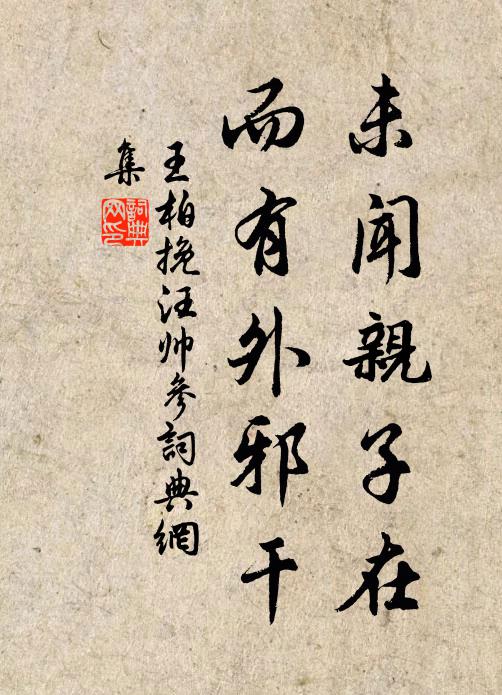 未聞親子在
而有外邪干
王柏挽汪帅參詞典網
集
詞典網印